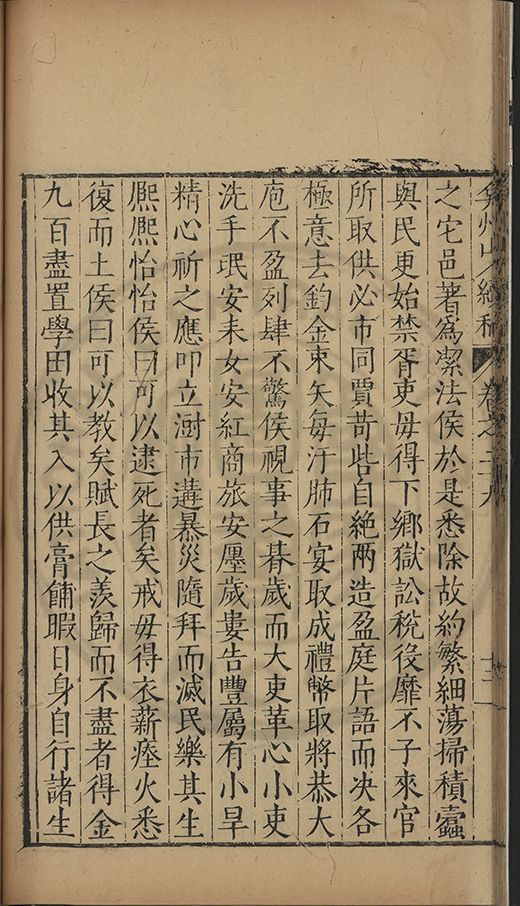 弇州山人續稿 卷之三九 十二
之宅邑著爲潔法侯於是悉除故約繁細蕩掃積蠧
與民更始禁胥吏毋得下鄉獄訟稅役靡不子來官
所取供必市同賈苛呰自絕兩造盈庭片語而决各
極意去鈞金束矢毎汗肺石宴取成禮幣取將恭大
庖不盈列肆不驚侯視事之朞歲而大吏革心小吏
洗手氓安耒女安紅商旅安廛歲婁告豐屬有小旱
精心祈之應叩立澍市遘暴災隨拜而滅民樂其生
熈熈怡怡侯曰可以逮死者矣戒毋得衣薪瘞火悉
復而土侯曰可以教矣賦長之羨歸而不盡者得金
九百盡置學田收其入以供膏餔暇日身自行諸生